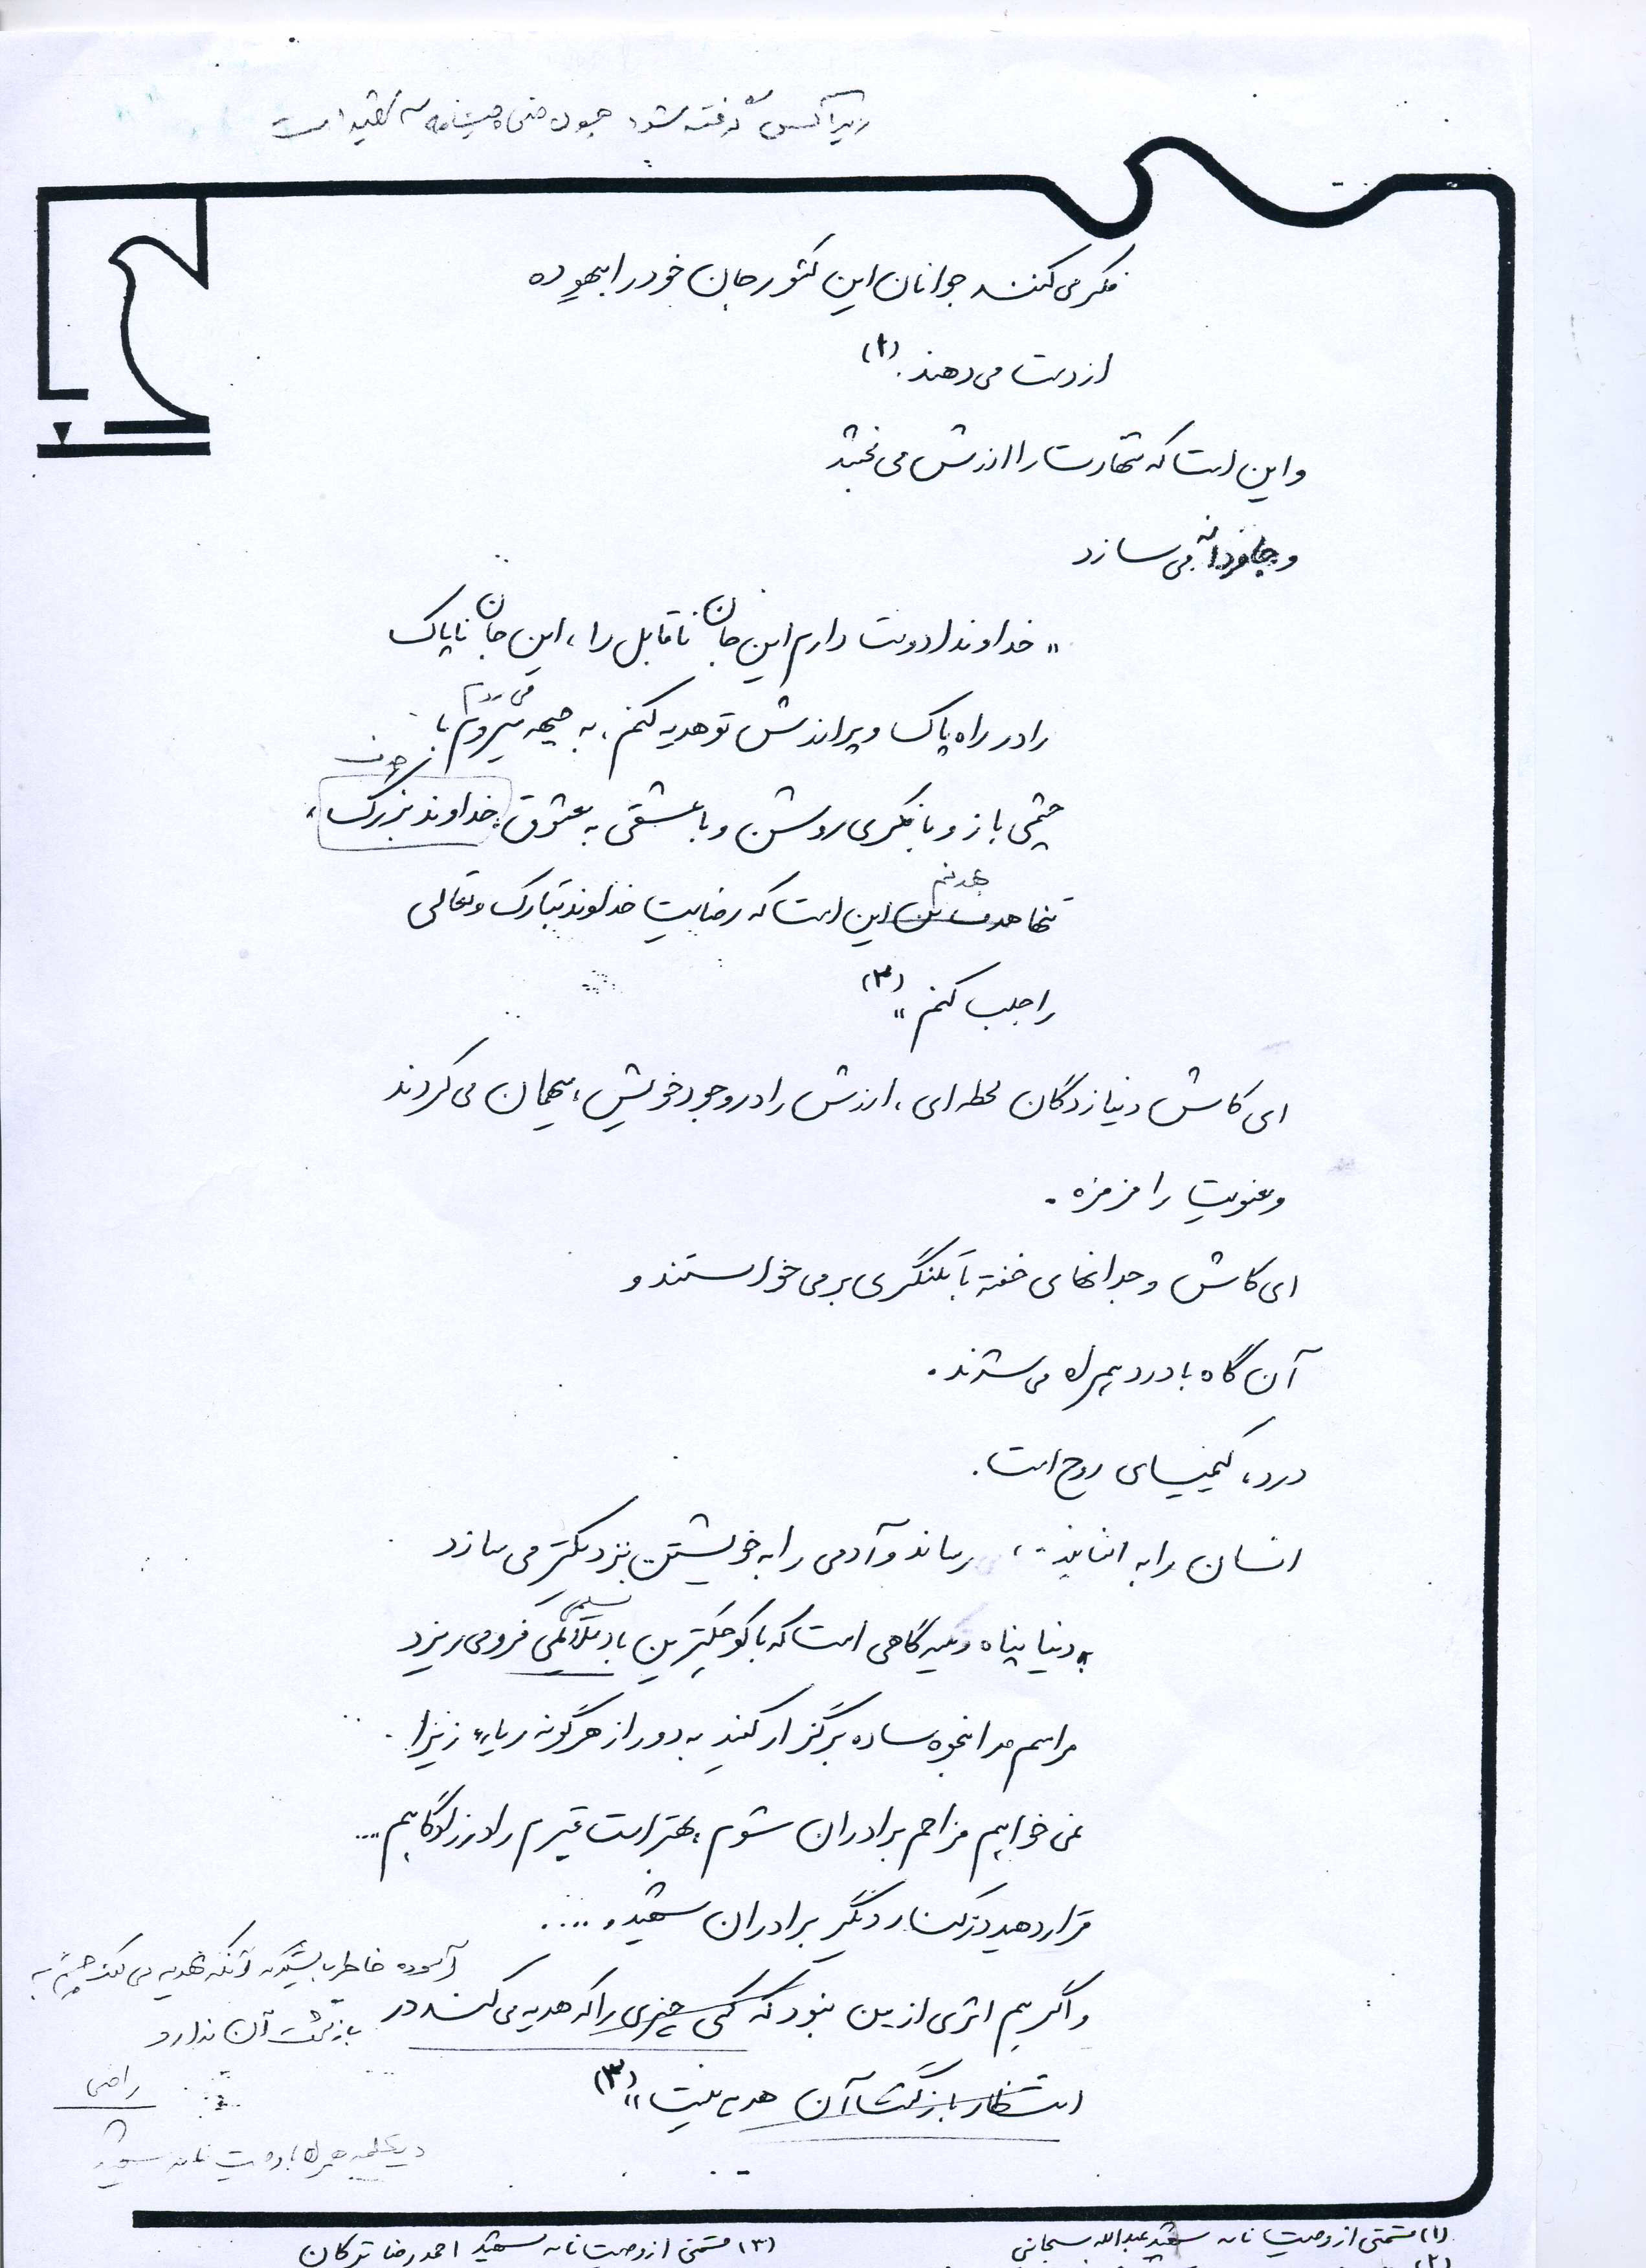 زیراکس گرفته شود چون متن وصیتنامه سه شهید است
فکر می کنند جوانان این کشور جان خود را بیهوده
از دست می دهند. (۱)
و این است که شهادت را ارزش می بخشد
و جاودانه می سازد
" خداوندا دوست دارم این جان ناقابل را، این جان ناپاک
را در راه پاک و پر ارزش تو هدیه کنم، به جبهه میروم با
می روم
چشمی باز و با فکری روشن و با عشقی به معشوق، خداوند بزرگ،
چون
تنها هدف من این است که رضایت خداوند تبارک و تعالی
هدفم
را جلب کنم " (۲)
ای کاش دنیازدگان لحظه ای، ارزش را در وجود خویش، میهمان می کردند
و معنویت را مزمزه .
ای کاش وجدانهای خفته با تلنگری برمی خواستند و
آن گاه با درد همراه می شدند.
درد، کیمیای روح است.
انسان را به رساند و آدمی را به خویشتن نزدیکتر می سازد
" دنیا پناه و تکیه گاهی است که با کوچکترین باد ملائمی فرو می ریزد
نسیمی
مراسم مرا بنحوه ساده برگزار کنید به دور از هرگونه ریا، زیرا
نمی خواهم مزاحم برادران شوم، بهتر است قبرم را در زادگاهم ....
قرار دهید در کنار دیگر برادران شهید. ....
و اگر هم اثری از من نبود که کسی چیزی را که هدیه می کند در
انتظار بازگشت آن هدیه نیست " (۳)
آسوده خاطر باشید که آنکه هدیه می کند چشم به
بازگشت آن ندارد
راضی
(۱) قسمتی از وصیت نامه شهید عبدالله سبحانی
(۲)
(۳) قسمتی از وصیت نامه شهید احمد رضا ترکان